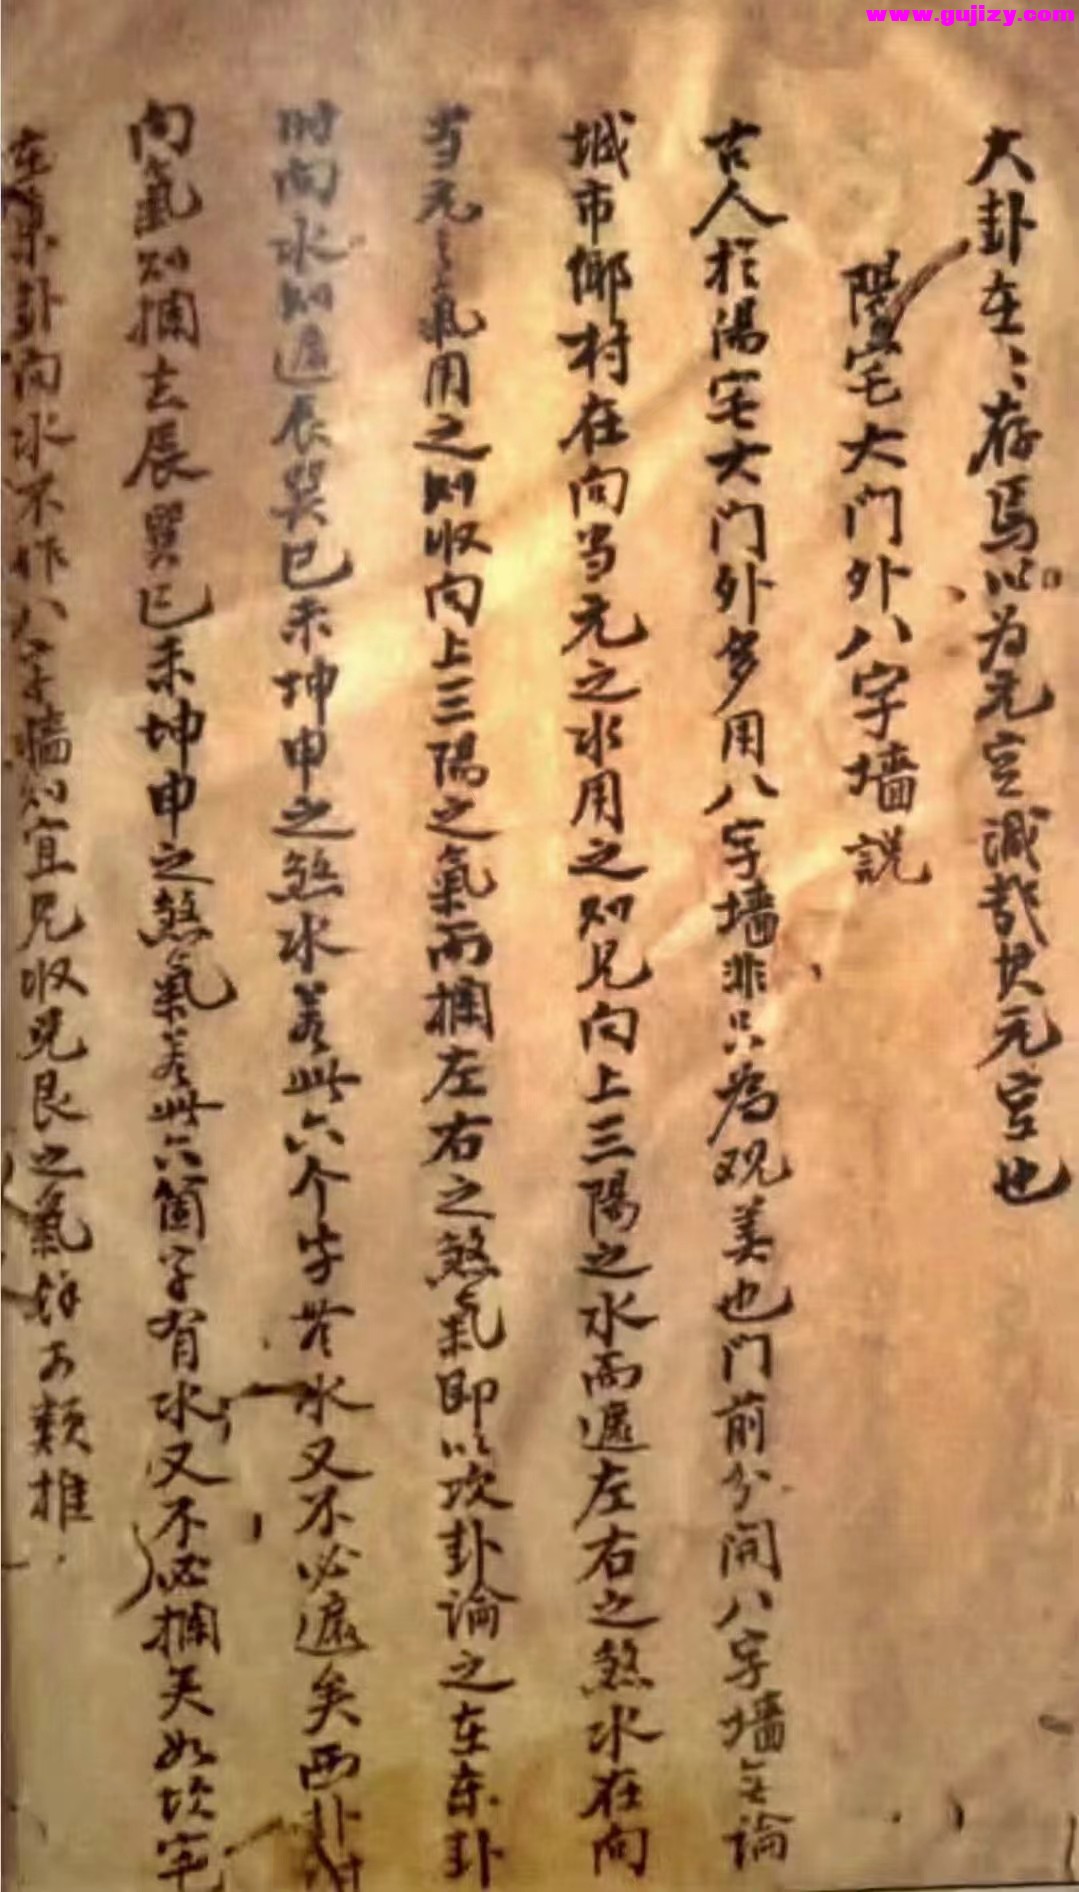 www.gujizy.com
大卦在〻存焉以为元空诚哉其元空也
陽宅大门外八字墙説
古人於陽宅大门外多用八字墙非只為观美也门前分開八字墙无論
城市鄉村在向当元之水用之则见向上三陽之水而遮左右之煞水在向
当元之氣用之则收向上三陽之氣而攔左右之煞氣即以坎卦論之在东卦
时向水则遮辰巽巳未坤申之煞水若此六个字无水又不必遮矣西卦时
向氣则攔去辰巽巳未坤申之煞氣若此六箇字有水又不必攔矣如坎宅
在東卦向水不作八字墙则宜见收兑艮之氣餘可類推